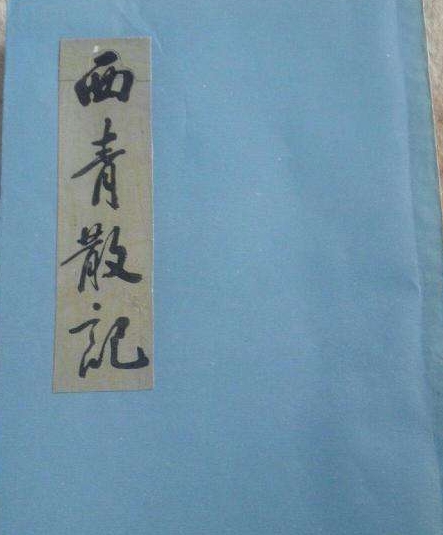 西青散記